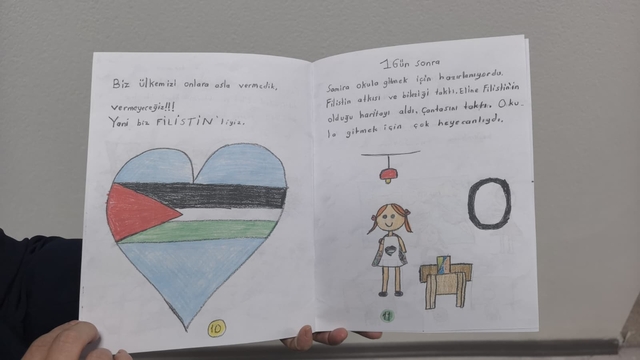 Biz ülkemizi onlara asla vermedik,
vermeyeceğiz!!!
Yani biz FİLİSTİN'liyiz.
10
1 Gün sonra
Samira okula gitmek için hazırlanıyordu.
Filistin atkısı ve bilekliği taktı. Eline Filistin'in
olduğu haritayı aldı. Çantasını taktı. Oku
la gitmek için çok heyecanlıydı.
11